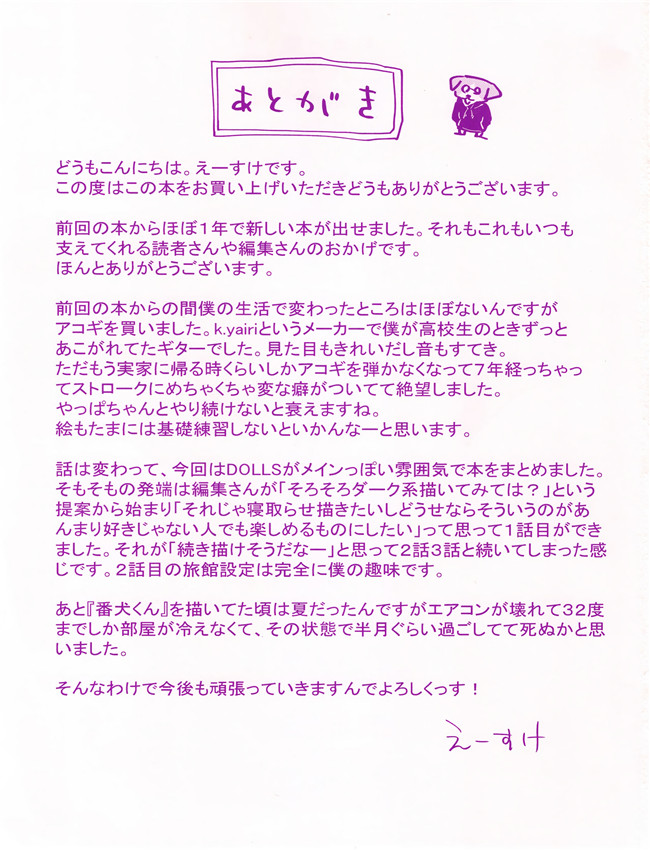 あとがき
どうもこんにちは。えーすけです。
この度はこの本をお買い上げいただきどうもありがとうございます。
前回の本からほぼ1年で新しい本が出せました。それもこれもいつも
支えてくれる読者さんや編集さんのおかげです。
ほんとありがとうございます。
前回の本からの間僕の生活で変わったところはほぼないんですが
アコギを買いました。k.yairiというメーカーで僕が高校生のときずっと
あこがれてたギターでした。見た目もきれいだし音もすてき。
ただもう実家に帰る時くらいしかアコギを弾かなくなって7年経っちゃっ
てストロークにめちゃくちゃ変な癖がついてて絶望しました。
やっぱちゃんとやり続けないと衰えますね。
絵もたまには基礎練習しないといかんなーと思います。
話は変わって、今回はDOLLSがメインっぽい雰囲気で本をまとめました。
そもそもの発端は編集さんが「そろそろダーク系描いてみては?」という
提案から始まり「それじゃ寝取らせ描きたいしどうせならそういうのがあ
んまり好きじゃない人でも楽しめるものにしたい」って思って1話目ができ
ました。それが「続き描けそうだなー」と思って2話3話と続いてしまった感
じです。2話目の旅館設定は完全に僕の趣味です。
あと『番犬くん』を描いてた頃は夏だったんですがエアコンが壊れて32度
までしか部屋が冷えなくて、その状態で半月ぐらい過ごしてて死ぬかと思
いました。
そんなわけで今後も頑張っていきますんでよろしくっす!
えーすけ